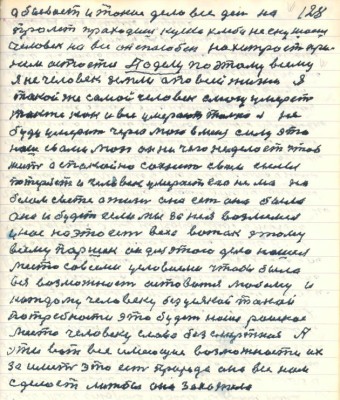 абывает и такое дело все дей на 128
пролет приходит куска хлеба не скушает
человек на все он способен на хитрость при
нем остости Подему поэтому всему
я не человек земли а по всей жизни Я
такой же самой человек смогу умереть
также как и все умерают только я не
буду умерать через мою в меня силу это
наш свами мозг он ничего не делает чтоб
жить а спокойно сохнет свои силы
потеряет и человек умерает его нема на
белом свете а жизнь она есть она была
она и будет если мы за нея возмемся
у нас на это есть вера вот как этому
всему парщек он для этого дела нашел
место совсеми условиями чтобы была
вся возможность оставатся любому и
каждому человеку без всякой такой
потребности это будет наше райское
место человеку слава безсмертная А
у тех вот все имеющие возможности их
за имеит это есть природа она все нам
сделает лишбы она захотела